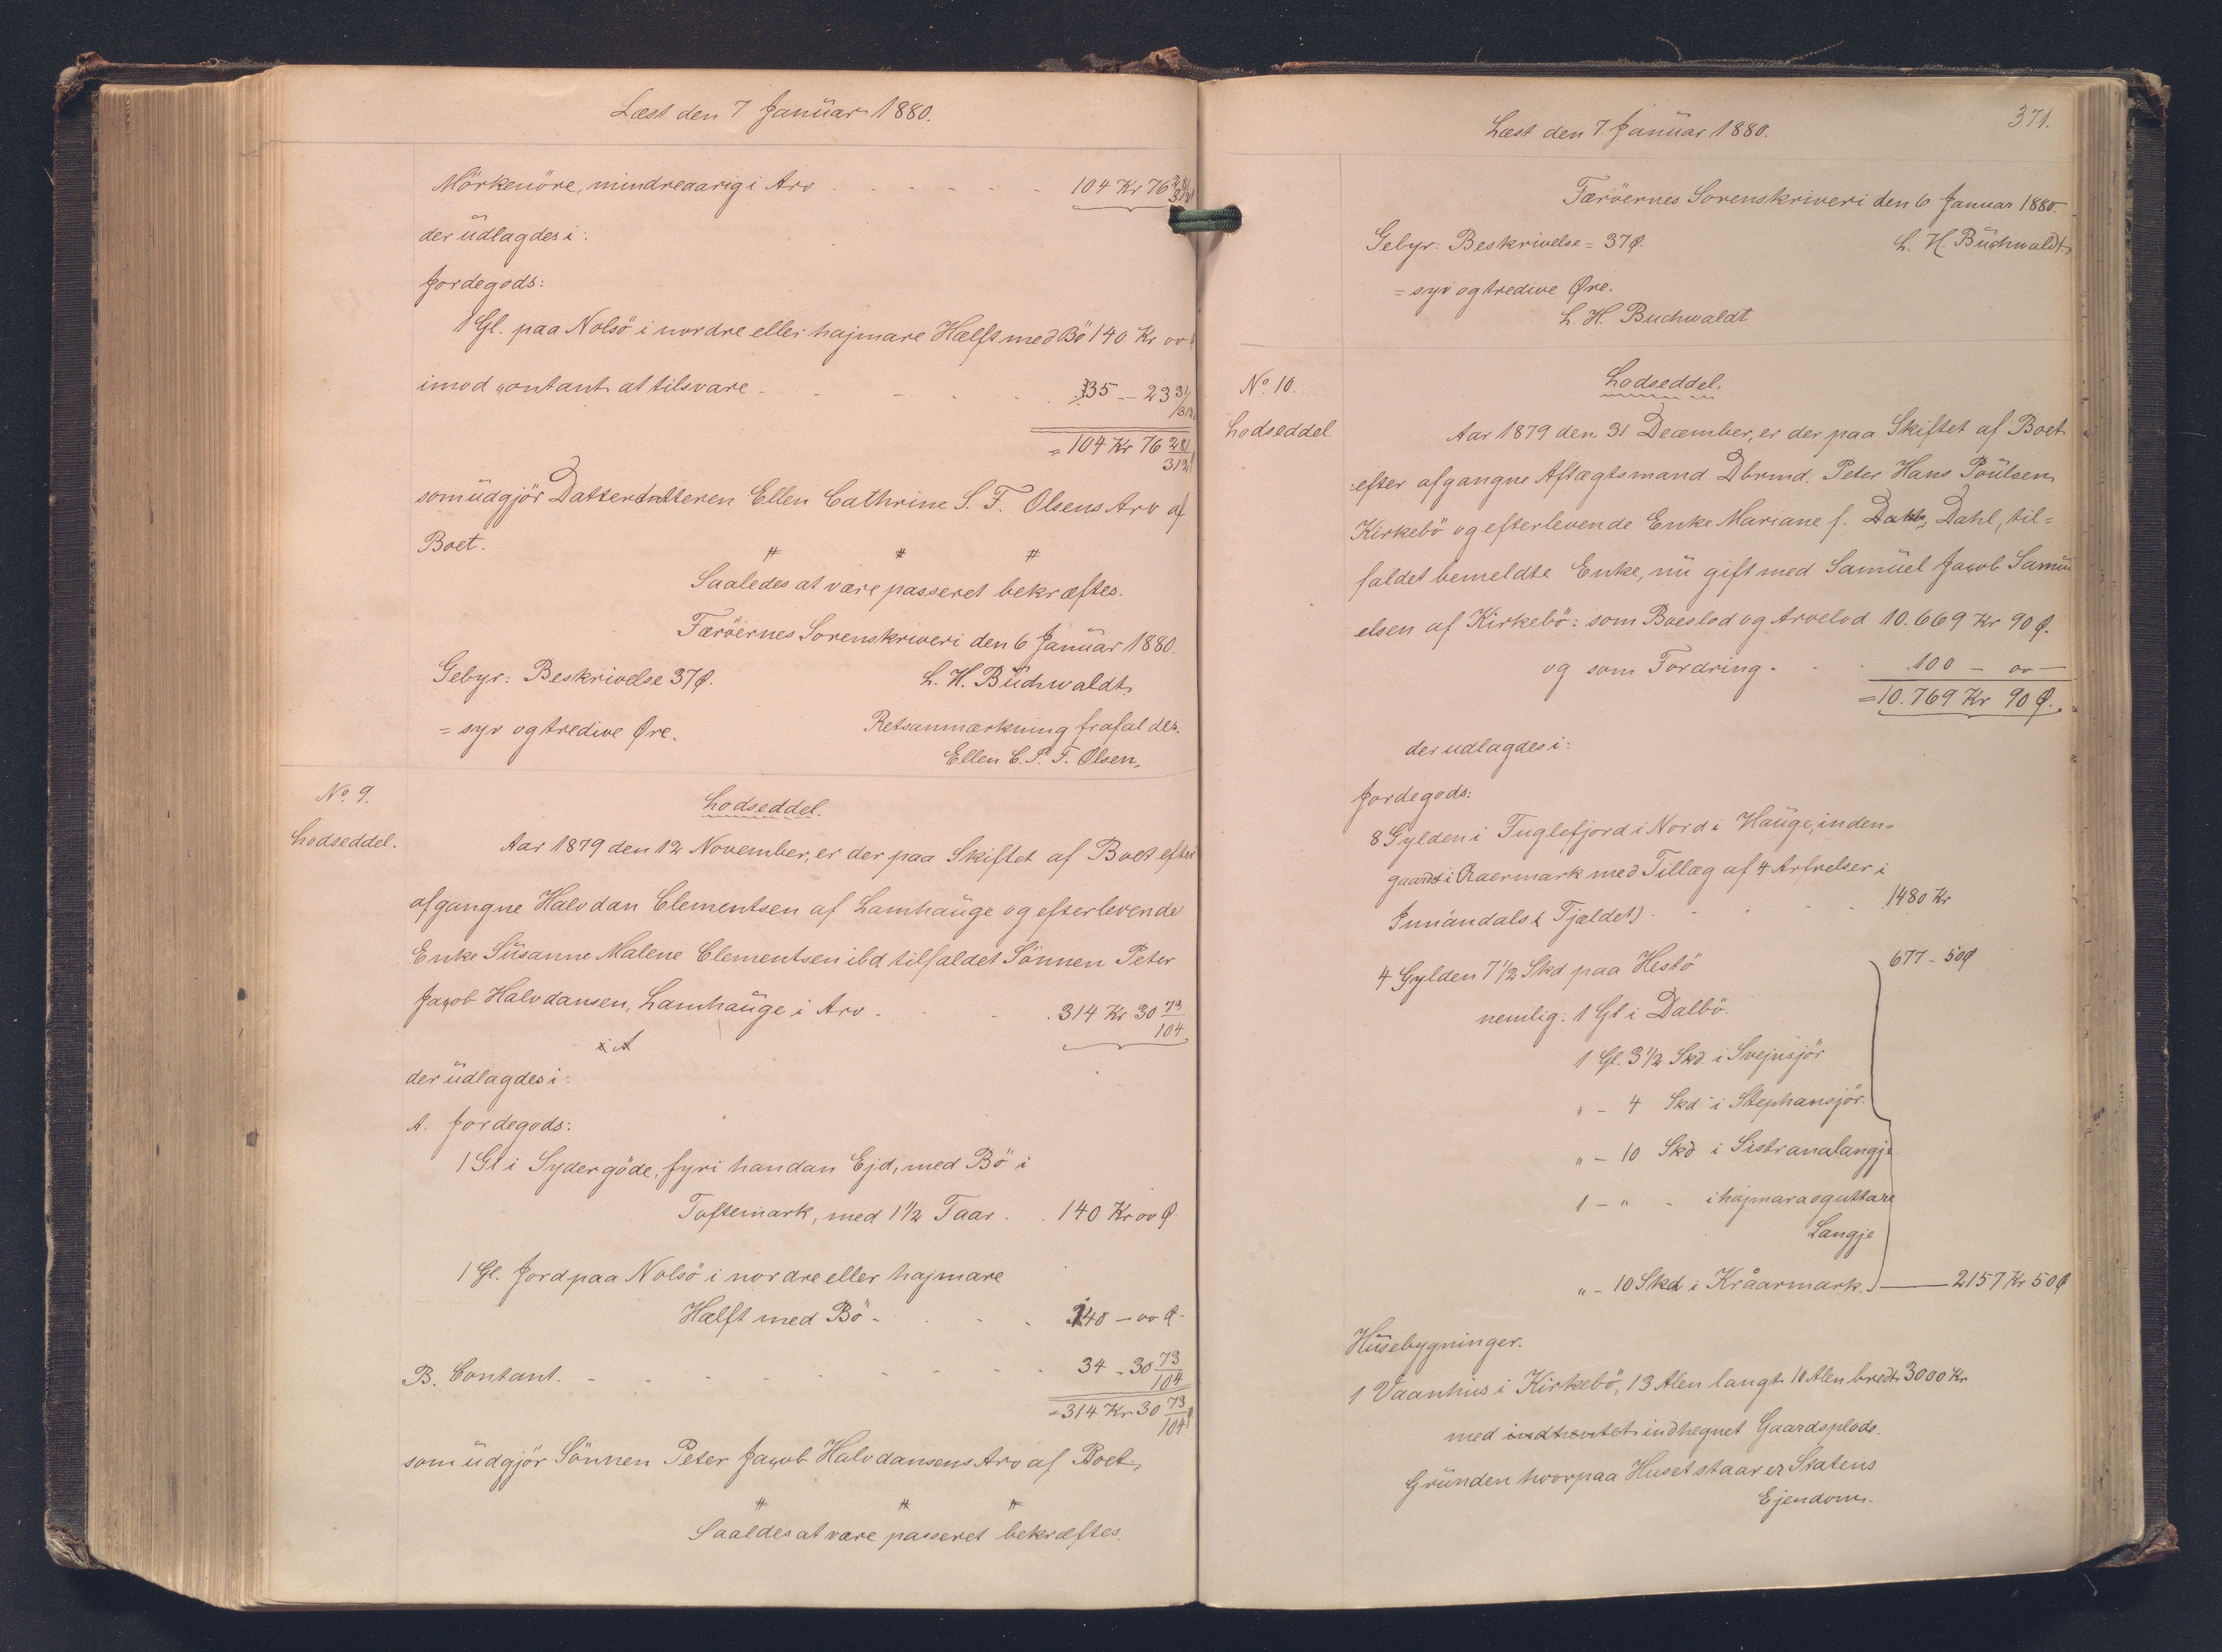 Læst den 7 Januar 1880.
Mörkenöre, mindreaarig i Arv 104 Kr 76 281/312
der udlagdes i:
Jordegods:
1 Gl. paa Nolsö i nordre eller hajmare Hælft med Bö 140 Kr oo
imod contant at tilsvare 35 - 23 31/312
= 104 Kr 76 281/312
som udgjör Datterdatteren Ellen Cathrine S. F. Olsens Arv af
Boet.
Saaledes at være passeret bekræftes.
Færöernes Sorenskriveri den 6 Januar 1880.
Gebyr: Beskrivelse 37 Ø. L. H. Buchwaldt
= syv og tredive Øre. Retsanmærkning frafaldes.
Ellen C. S. F. Olsen.
No 9.
Lodseddel.
Lodseddel.
Aar 1879 den 12 November, er der paa Skiftet af Boet efter
afgangne Halvdan Clementsen af Lamhauge og efterlevende
Enke Susanne Malene Clementsen ibd tilfaldet Sönnen Peter
Jacob Halvdansen, Lamhauge i Arv 314 Kr 30 73/104
i A
der udlagdes i:
A. Jordegods:
1 Gl i Sydergöde, fyri handan Ejd, med Bö i
Toftemark, med 1 1/2 Faar. 140 Kr oo Ø.
1 Gl. Jord paa Nolsö i nordre eller hajmare
Hælft med Bö 140 - oo Ø.
B. Contant. 34 - 30 73/104
= 314 Kr 30 73/104
som udgjör Sönnen Peter Jacob Halvdansens Arv af Boet.
Saaldes at være passeret bekræftes.
371.
Læst den 7 Januar 1880.
Færöernes Sorenskriveri den 6 Januar 1880.
Gebyr: Beskrivelse = 37 Ø. L. H. Buchwaldt
= syv og tredive Øre.
L. H. Buchwaldt
No 10.
Lodseddel.
Lodseddel.
Aar 1879 den 31 December, er der paa Skiftet af Boet
efter afgangne Aftægtsmand Dbrmd. Peter Hans Poulsen
Kirkebö og efterlevende Enke Mariane f. Dahl, Dahl, til=
faldet bemeldte Enke, nu gift med Samuel Jacob Samu
elsen af Kirkebö: som Boeslod og Arvelod 10.669 Kr 90 Ø.
og som Fordring. 100 - oo -
= 10.769 Kr 90 Ø.
der udlagdes i:
Jordegods:
8 Gylden i Fuglefjord i Nord i Hauge, inden=
gaards i Raermark med Tillæg af 4 i
(Fjældet) 1480 Kr
4 Gylden 7 1/2 Skd paa Hestö 677 - 50 Ø
nemlig: 1 Gl i Dalbö.
1 Gl. 3 1/2 Skd. i Svejnsjör
" - 4 Skd i Stephansjör.
" - 10 Skd i Sistranalangje
1 - " - i hajmara og uttare
Langje
" - 10 Skd i Kråarmark. 2157 Kr 50 Ø
Husebygninger.
1 Vaanhus i Kirkebö, 13 Alen langt 10 Alen bredt 3000 Kr
med indhentet indhegnet Gaardsplads.
Grunden hvorpaa Huset staar er Statens
Ejendom.